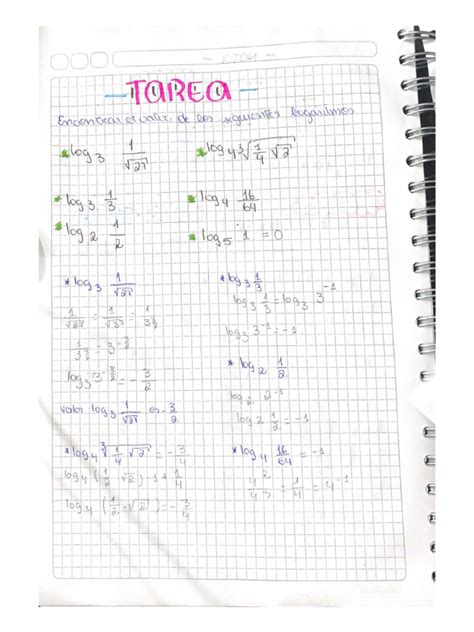 TAREA
Encontrar el valor de los siguientes logaritmos
*log₃ 1/√27
*log₄ ∛(1/4 √2)
*log₃ 1/3
*log₄ 16/64
*log₂ 1/2
*log₅ 1 = 0
*log₃ 1/√27
1/√27 = 1/√3³ = 1/3^(3/2)
1/3^(3/2) = 3^(-3/2)
log₃ 3^(-3/2) = -3/2
valor log₃ 1/√27 es -3/2
*log₄ ∛(1/4 √2) = -3/4
log₄ (1/2 √2) -1 + 1/4
log₄ (1/2 · √2) = -3/4
*log₃ 1/3
log₃ 1/3 = log₃ 3⁻¹
log₃ 3⁻¹ = -1
*log₂ 1/2
log₂ 2⁻¹
log₂ 1/2 = -1
*log₄ 16/64 = -1
4²/4³ = 1/4 = 4⁻¹